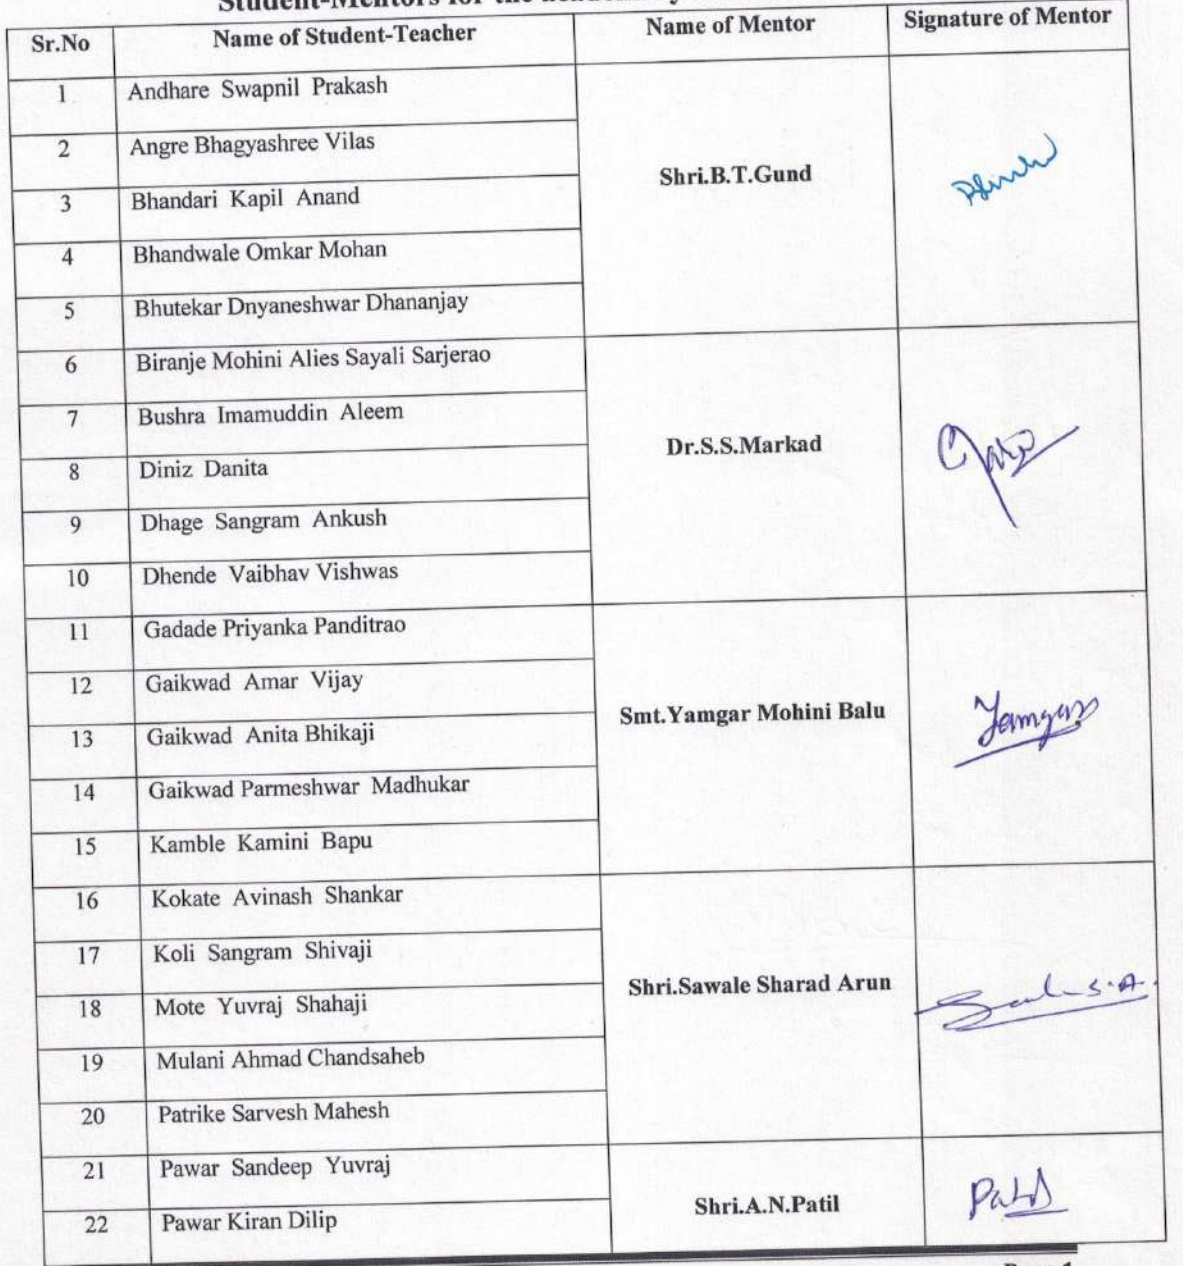 Student-Mentors for the
Sr.No Name of Student-Teacher Name of Mentor Signature of Mentor
1 Andhare Swapnil Prakash
2 Angre Bhagyashree Vilas
Shri.B.T.Gund
3 Bhandari Kapil Anand
4 Bhandwale Omkar Mohan
5 Bhutekar Dnyaneshwar Dhananjay
6 Biranje Mohini Alies Sayali Sarjerao
7 Bushra Imamuddin Aleem
Dr.S.S.Markad
8 Diniz Danita
9 Dhage Sangram Ankush
10 Dhende Vaibhav Vishwas
11 Gadade Priyanka Panditrao
12 Gaikwad Amar Vijay
Smt.Yamgar Mohini Balu Yamgar
13 Gaikwad Anita Bhikaji
14 Gaikwad Parmeshwar Madhukar
15 Kamble Kamini Bapu
16 Kokate Avinash Shankar
17 Koli Sangram Shivaji
Shri.Sawale Sharad Arun S.A.
18 Mote Yuvraj Shahaji
19 Mulani Ahmad Chandsaheb
20 Patrike Sarvesh Mahesh
21 Pawar Sandeep Yuvraj
Shri.A.N.Patil Patil
22 Pawar Kiran Dilip